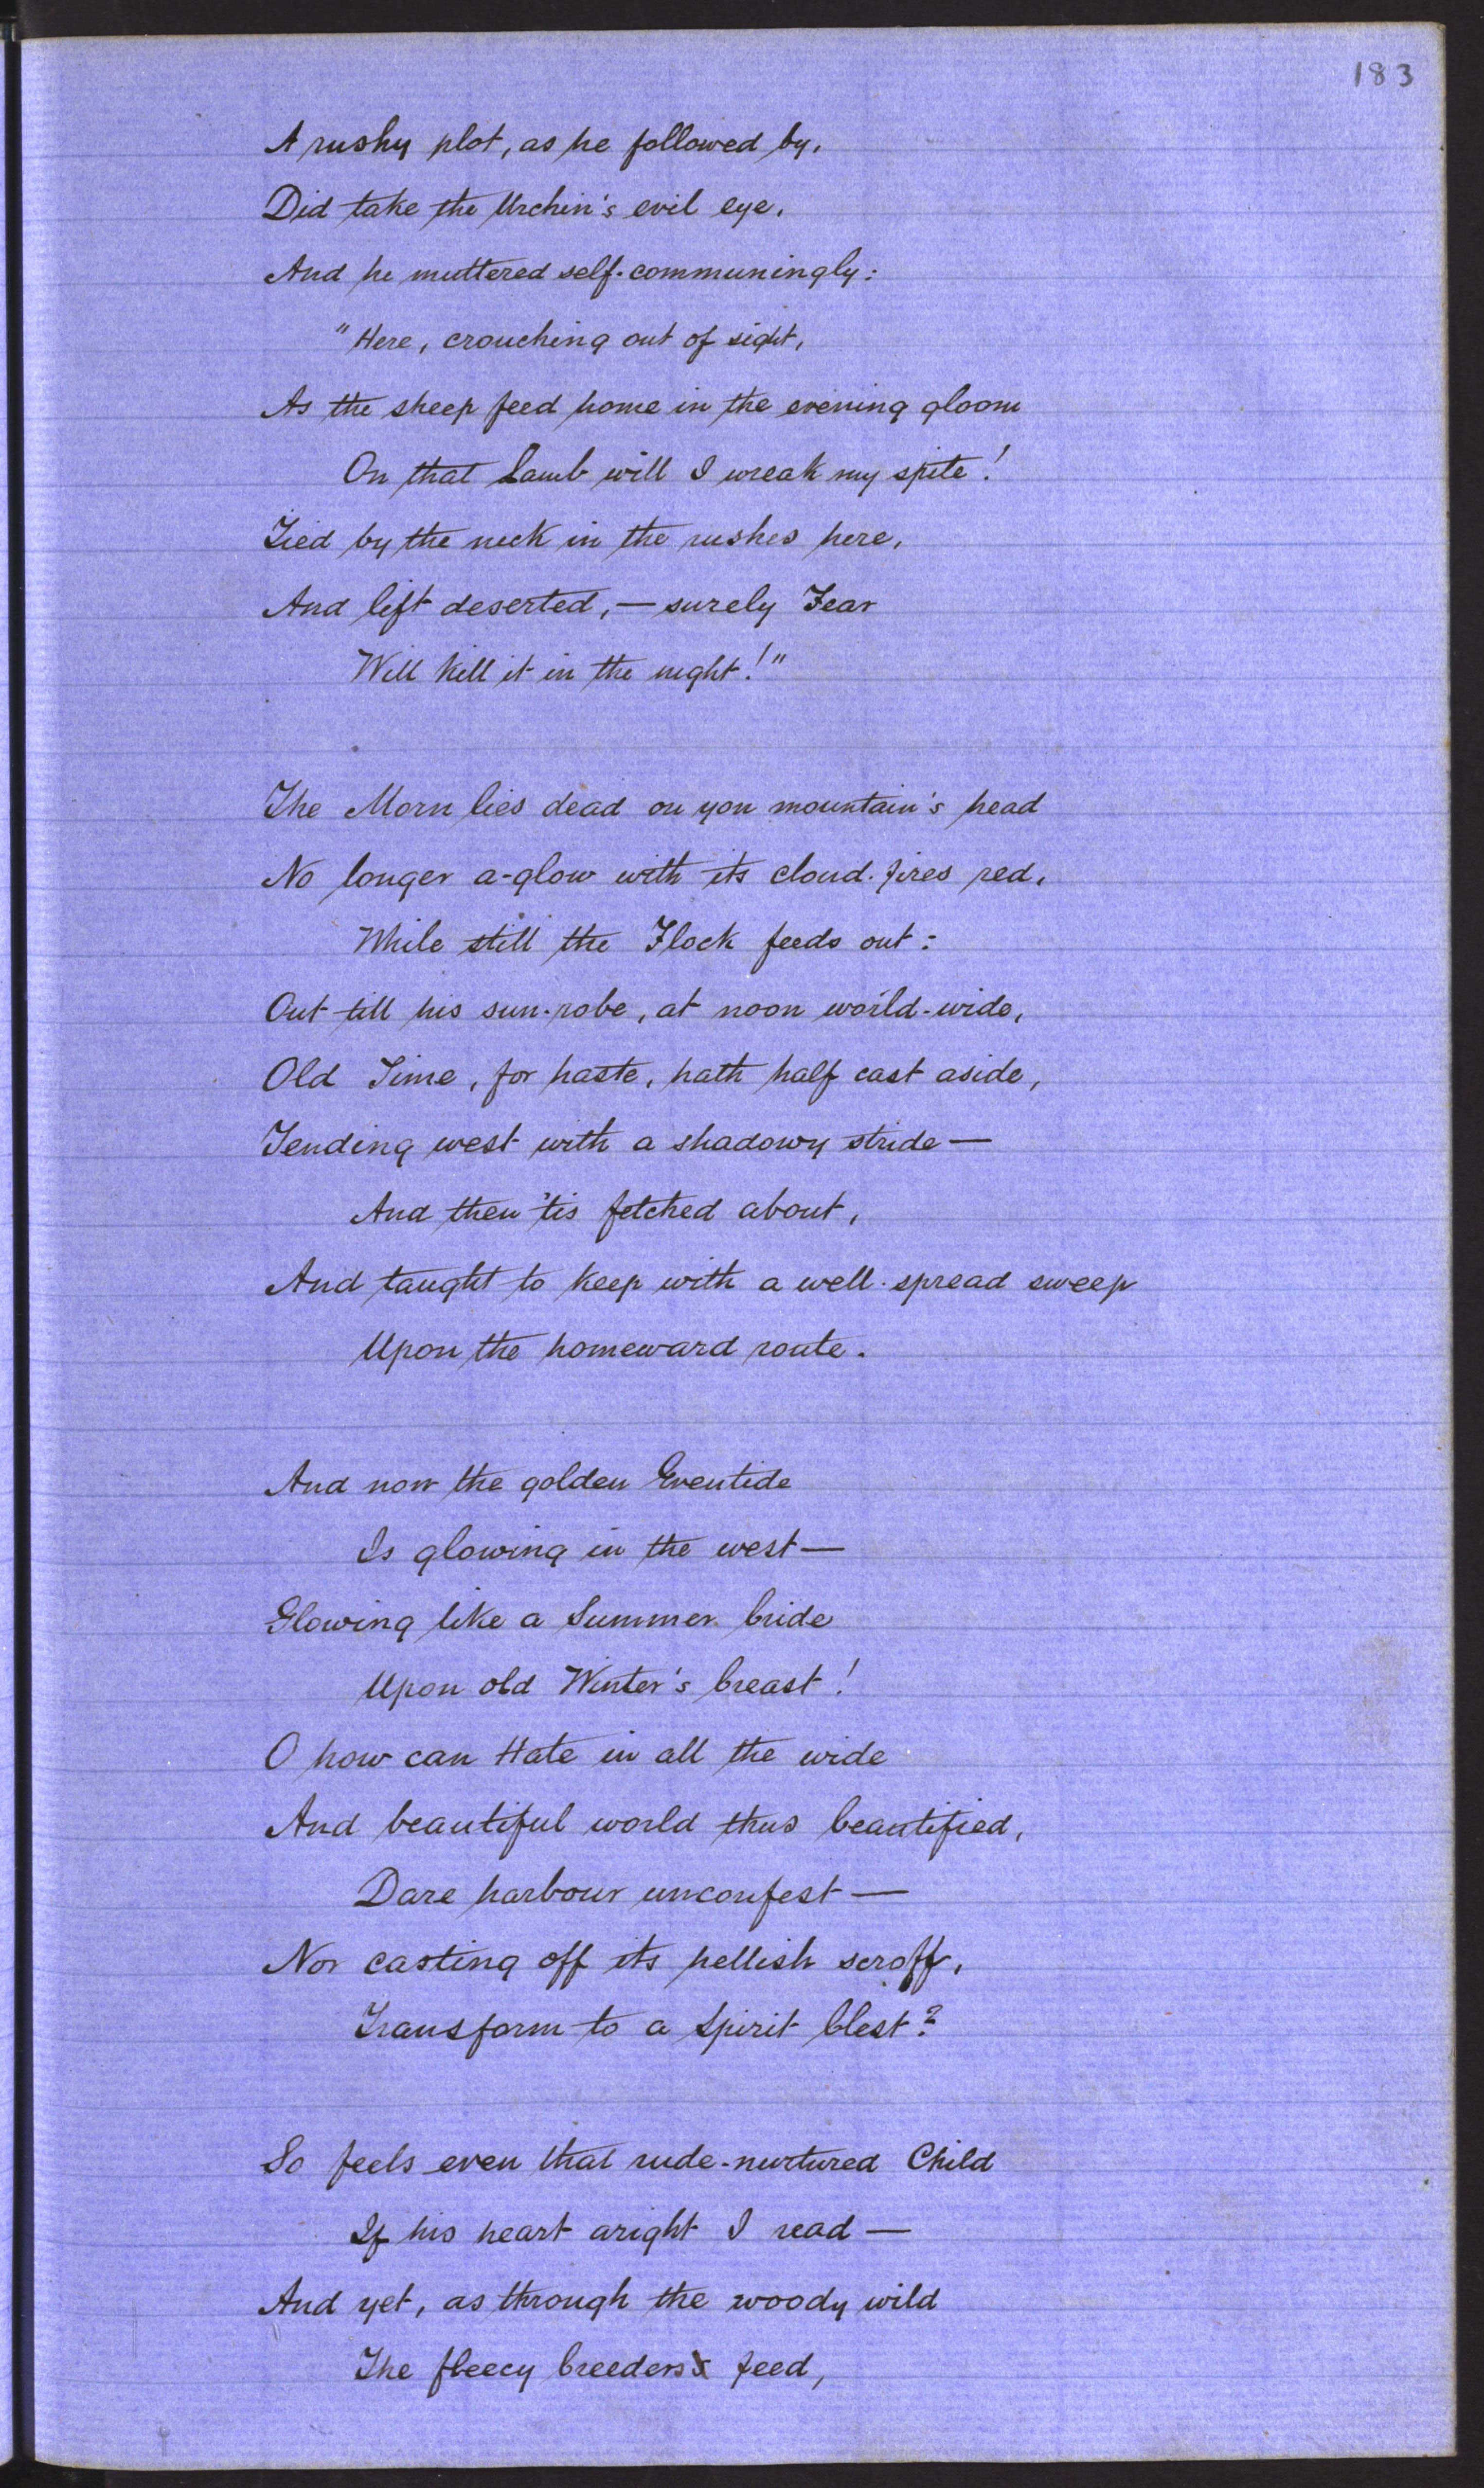 183
A rushy plot, as he followed by,
Did take the Urchin's evil eye,
And he muttered self-communingly:
"Here, crouching out of sight,
As the sheep feed home in the evening gloom
On that Lamb will I wreak my spite!
Tied by the neck in the rushes here,
And left deserted, — surely Fear
Will kill it in the night!"
The Morn lies dead on yon mountain's head
No longer a-glow with its cloud-fires red,
While still the Flock feeds out:
Out till his sun-robe, at noon world-wide,
Old Time, for haste, hath half cast aside,
Tending west with a shadowy stride —
And then 'tis fetched about,
And taught to keep with a well-spread sweep
Upon the homeward route.
And now the golden Eventide
Is glowing in the west —
Glowing like a Summer bride
Upon old Winter's breast!
O how can Hate in all the wide
And beautiful world thus beautified,
Dare harbour unconfest —
Nor casting off its hellish scroff,
Transform to a Spirit blest?
So feels even that rude-nurtured Child
If his heart aright I read —
And yet, as through the woody wild
The fleecy breeders feed,